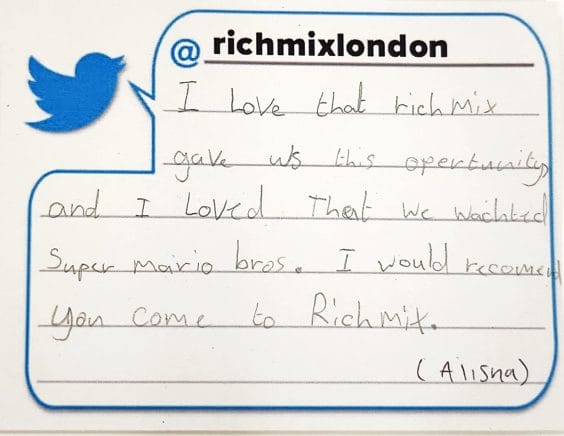 @ richmixlondon
I Love that richmix
gave us this opertunity
and I Loved That we wachted
Super mario bros. I would recomend
you come to Richmix.
(Alisha)